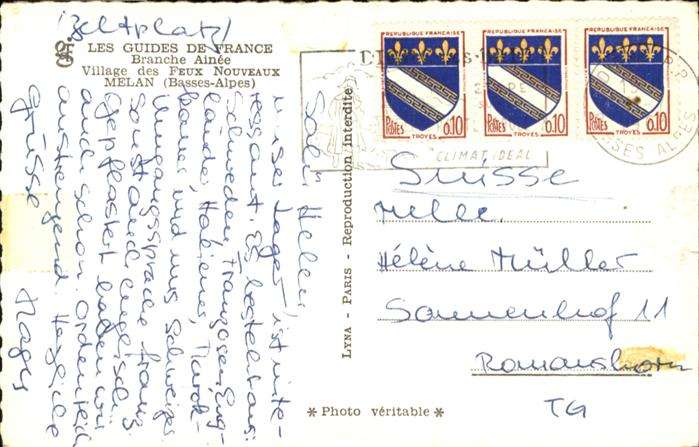 (Zeltplatz)
LES GUIDES DE FRANCE
Branche Aînée
Village des FEUX NOUVEAUX
MELAN (Basses-Alpes)
Salü Helen,
unser Lager ist inte-
ressant. Es besteht aus:
Schweden, Franzosen, Eng-
länder, Italiener,
und uns Schweizer.
Umgangssprache franz.
sonst auch englisch.
Gepflastert haben wir
auch schon. Ordentlich
anstrengend. Herzliche
Grüsse
LYNA - PARIS - Reproduction interdite
REPUBLIQUE FRANÇAISE
POSTES
0,10
TROYES
REPUBLIQUE FRANÇAISE
POSTES
0,10
TROYES
REPUBLIQUE FRANÇAISE
POSTES
0,10
TROYES
CLIMAT IDEAL
SES ALPES
Suisse
Mlle.
Hélène Müller
Sonnenhof 11
Romanshorn
TG
* Photo véritable *